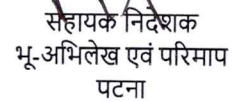 सहायक निदेशक
भू-अभिलेख एवं परिमाप
पटना